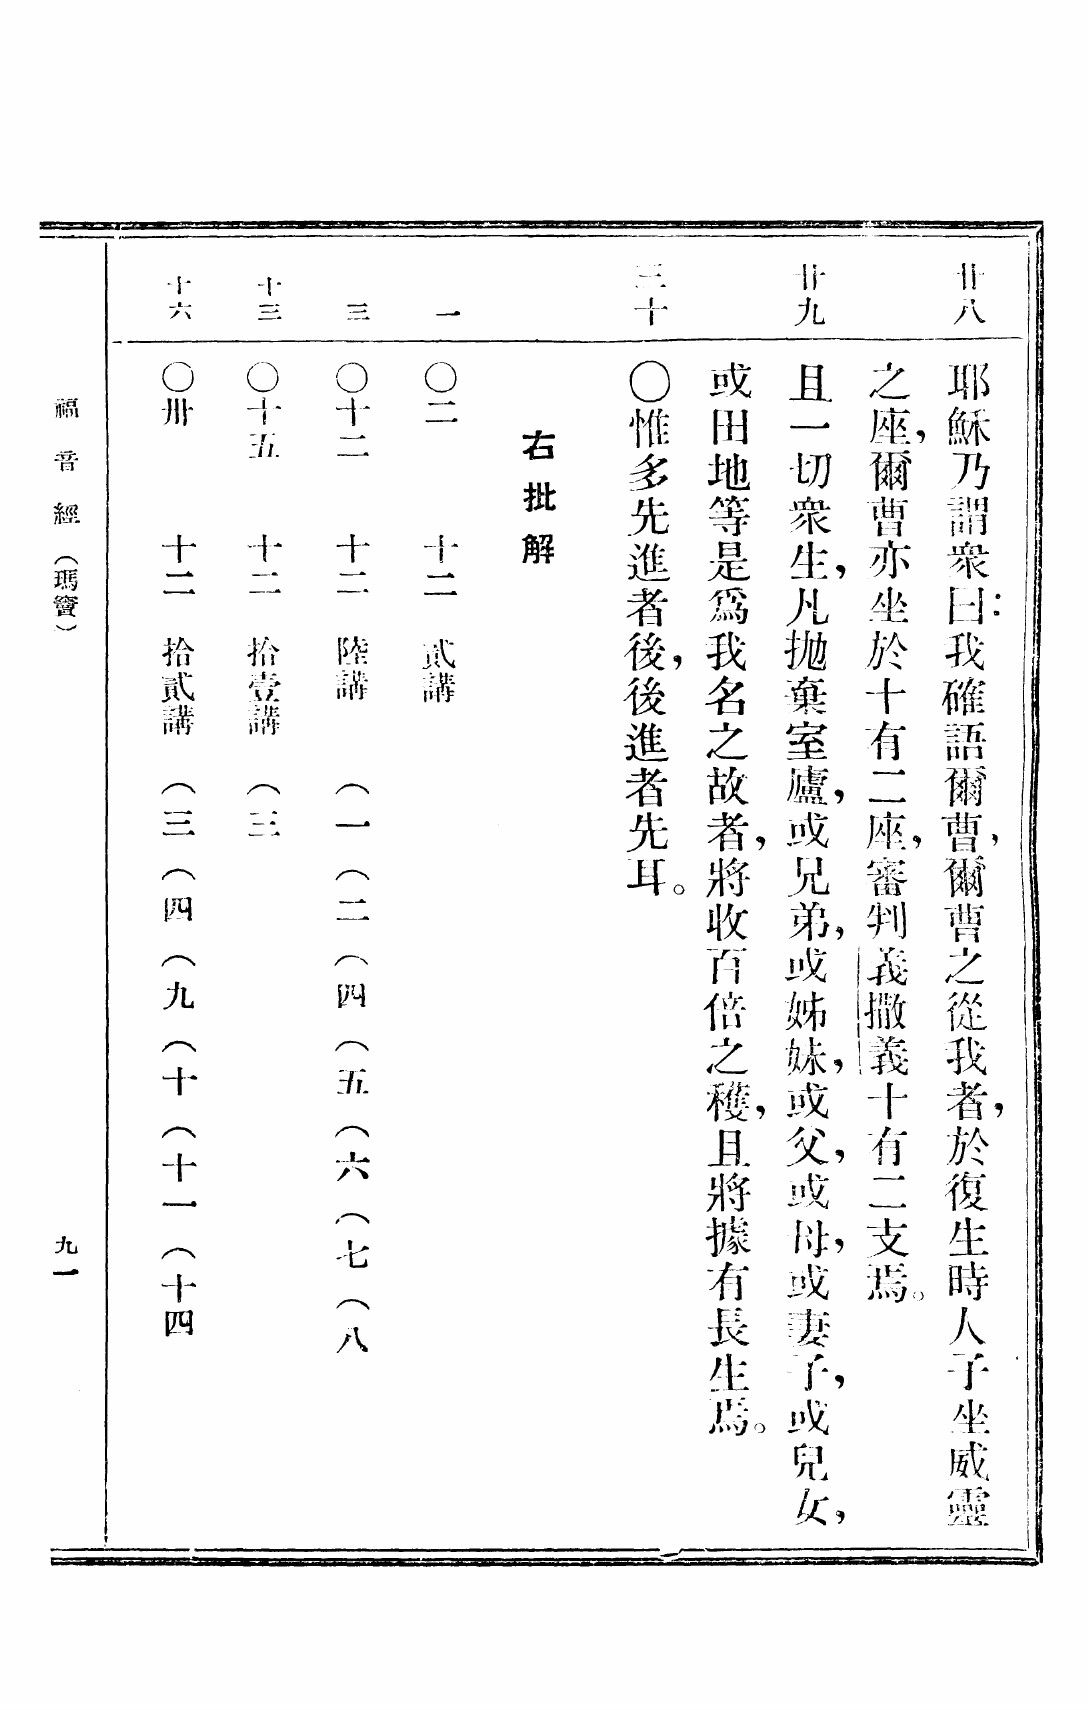 廿八
耶穌乃謂衆曰：我確語爾曹，爾曹之從我者，於復生時人子坐威靈
之座，爾曹亦坐於十有二座，審判義撒義十有二支焉。
廿九
且一切衆生，凡拋棄室廬，或兄弟，或姊妹，或父，或母，或妻子，或兒女，
或田地等是爲我名之故者，將收百倍之穫，且將據有長生焉。
三十
〇惟多先進者後，後進者先耳。
右批解
一 〇二 十二 貳講
三 〇十二 十二 陸講 （一（二（四（五（六（七（八
十三 〇十五 十二 拾壹講 （三
十六 〇卅 十二 拾貳講 （三（四（九（十（十一（十四
福音經（瑪竇）
九一